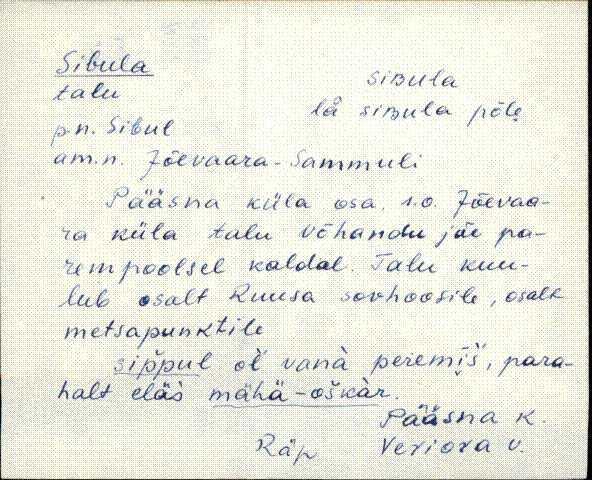 Sibula
talu
siʙula
lǟ siʙula pōlɛ
p.n. Sibul
am.n. Jõevaara-Sammuli
Pääsna küla osa, s.o. Jõevaa-
ra küla talu Võhandu jõe pa-
rempoolsel kaldal. Talu kuu-
lub osalt Ruusa sovhoosile, osalt
metsapunktile
sip̌pul oĺ vanà peremìš, para-
halt eläs̀ mähä-oškàr.
Pääsna k.
Räp Veriora v.